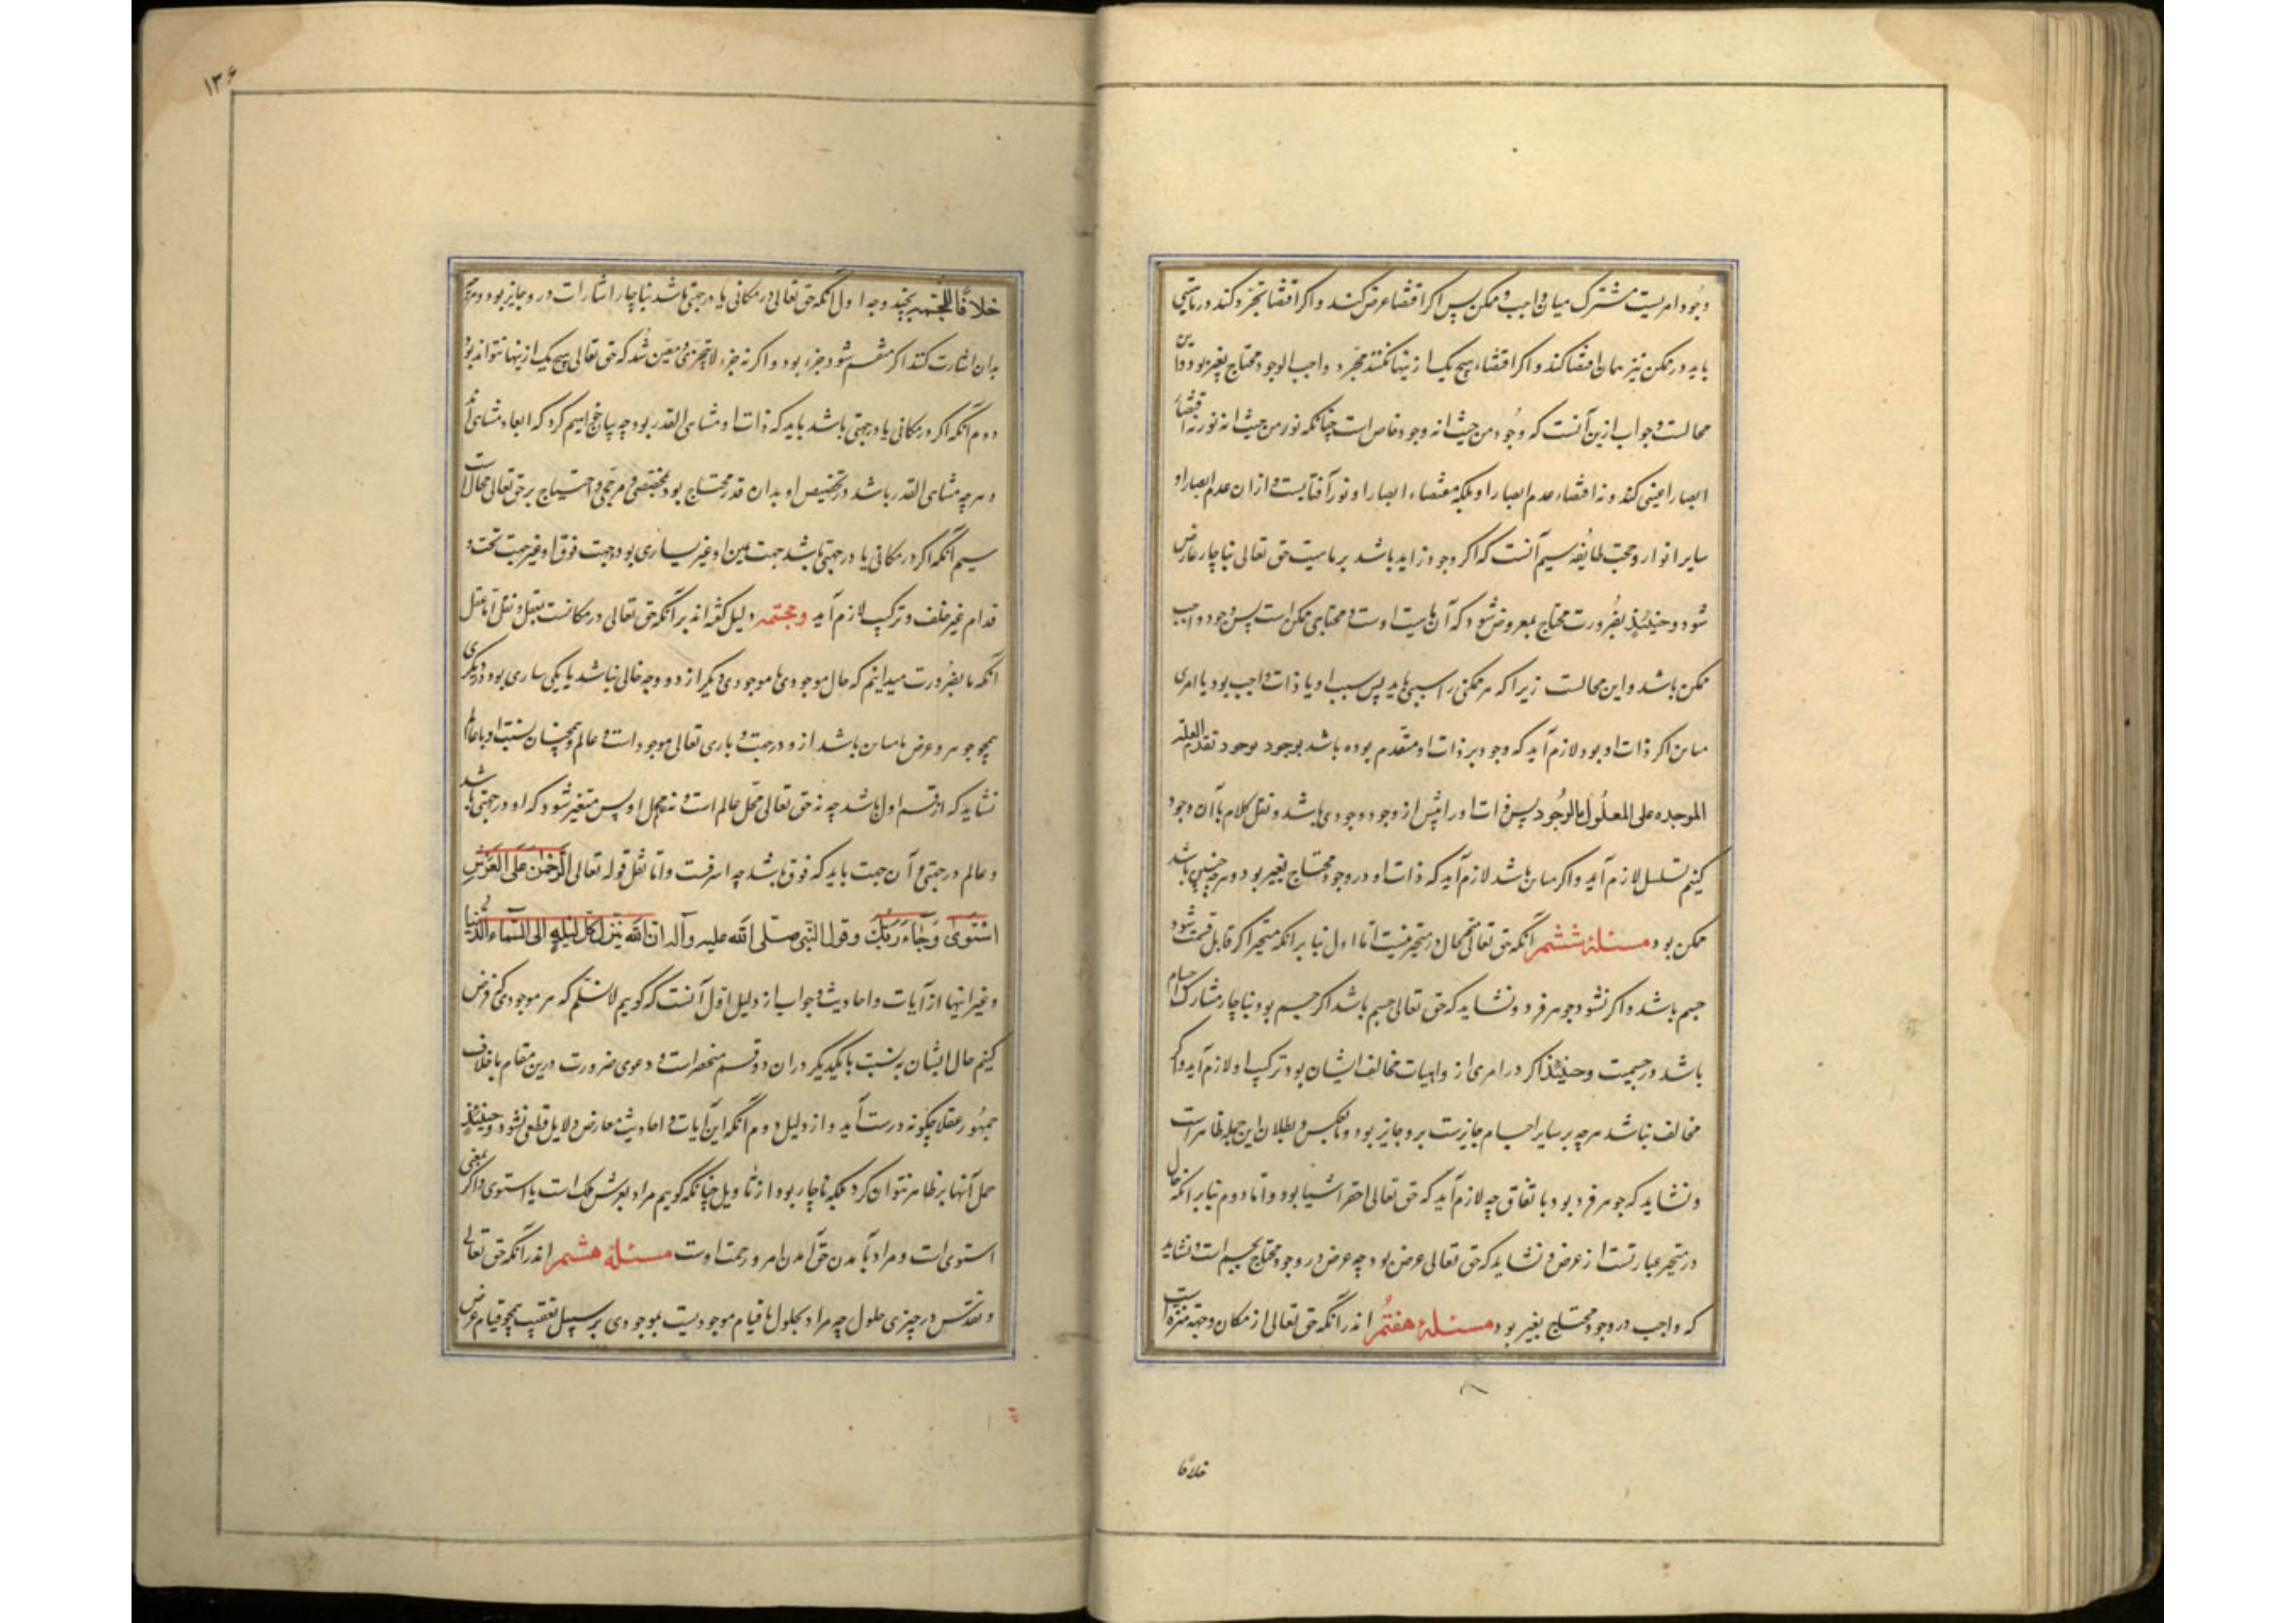 وجود امریست مشترک میان واجب و ممکن پس اگر اقتضا عرض کند و اگر اقتضا تجرد کند در ماهیتی
باید در ممکن نیز همان اقتضا کند و اگر اقتضاء هیچ یک ازینها نکند تجرد واجب الوجود محتاج بغیر بود و این
محالست و جواب ازین آنست که وجود من حیث انه وجود خاص است چنانکه نور من حیث انه نور نه اقتضاء
ابصار اعشی کند و نه اقتضاء عدم ابصار او بلکه مقتضاء ابصار او نور آفتابست و ازان عدم ابصار او
سایر انوار و حجت طایفه سیم آنست که اگر وجود زاید باشد بر ماهیت حق تعالی ناچار عارض
شود و حینئذ بضرورت محتاج بمعروض شود که آن ماهیت اوست و محتاج ممکن است پس وجود واجب
ممکن باشد و این محالست زیرا که هر ممکنی را سببی باید پس سبب او یا ذات واجب بود یا امری
مباین اگر ذات او بود لازم آید که وجود بر ذات او متقدم بوده باشد بوجود بوجود تقدم العلة
الموجده علی المعلول بالوجود پس ذات او را پیش از وجود وجودی باشد و نقل کلام با آن وجود
کنیم تسلسل لازم آید و اگر مباین باشد لازم آید که ذات او در وجود محتاج بغیر بود و هر چه چنین باشد
ممکن بود مسئلهٔ ششم آنکه حق تعالی متحیز و حال در متحیز نیست اما اول بنا بر انکه متحیز اگر قابل قسمت شود
جسم باشد و اگر نشود جوهر فرد و نشاید که حق تعالی جسم باشد اگر جسم بود ناچار مشارک اجسام
باشد در جسمیت و حینئذ اگر در امری از واهیات مخالف ایشان بود ترکیب او لازم آید و اگر
مخالف نباشد هر چه بر سایر اجسام جایزست برو جایز بود و بالعکس و بطلان این جمله ظاهر است
و نشاید که جوهر فرد بود باتفاق چه لازم آید که حق تعالی احقر اشیا بود و اما دوم بنا بر انکه حال
در متحیز عبارتست از عرض و نشاید که حق تعالی عرض بود چه عرض در وجود محتاج بجسم است و نشاید
که واجب در وجود محتاج بغیر بود مسئلهٔ هفتم اندر آنکه حق تعالی از مکان و جهة منزه است
خلافا
۱۳۶
خلافًا للمجسمه بچند وجه اول آنکه حق تعالی در مکانی یا در جهتی باشد ناچار اشارات در و جایز بود و هر چه
بدان اشارت کنند اگر منقسم شود جزء بود و اگر نه جزء لا یتجزی و معین شد که حق تعالی هیچ یک ازینها نتواند بود
دوم آنکه اگر در مکانی یا در جهتی باشد باید که ذات او متناهی القدر بود چه بیان خواهیم کرد که ابعاد متناهی اند
و هر چه متناهی القدر باشد در تخصیص او بدان قدر محتاج بود بمخصصی و مرجحی و احتیاج بر حق تعالی محال است
سیم آنکه اگر در مکانی یا در جهتی باشد جهت یمین او غیر یساری بود و جهت فوق او غیر جهت تحت و
قدام غیر خلف و ترکیب لازم آید و مجسمه دلیل گفته اند بر آنکه حق تعالی در مکانست بعقل و نقل اما عقل
آنکه ما بضرورت میدانیم که حال موجودی با موجودی دیگر از دو وجه خالی نباشد یا یکی ساری بود در دیگری
همچو جوهر و عرض یا مباین باشد ازو در جهت و باری تعالی موجود است و عالم و همچنان نسبت او با عالم
نشاید که از قسم اول باشد چه نه حق تعالی محل عالم است و نه محل او پس متغیر شود که او در جهتی باشد
و عالم در جهتی و آن جهت باید که فوق باشد چه اشرفست و اما نقل قوله تعالی الرَّحْمٰنُ عَلَی الْعَرْشِ
اسْتَوٰی وَجَآءَ رَبُّکَ وقول النبی صلی الله علیه وآله ان الله ینزل کل لیلة الی السماء الدنیا
و غیر اینها از آیات و احادیث و جواب از دلیل اول آنست که گوییم لا نسلم که هر موجودی که فرض
کنیم حال ایشان به نسبت با یکدیگر در ان دو قسم منحصر است و دعوی ضرورت درین مقام با خلاف
جمهور عقلا چگونه درست آید و از دلیل دوم آنکه این آیات و احادیث معارض دلایل قطعی نشود و حینئذ
حمل آنها بر ظاهر نتوان کرد بلکه ناچار بود از تأویل چنانکه گوییم مراد بعرش فلک است یا استوی ذاکر بمعنی
استوی است و مراد بآمدن حق آمدن امر و رحمت اوست مسئلهٔ هشتم اندر آنکه حق تعالی
و تقدس در چیزی حلول چه مراد بحلول ما قیام موجودیست بموجودی بر سبیل تعقیب همچو قیام عرض